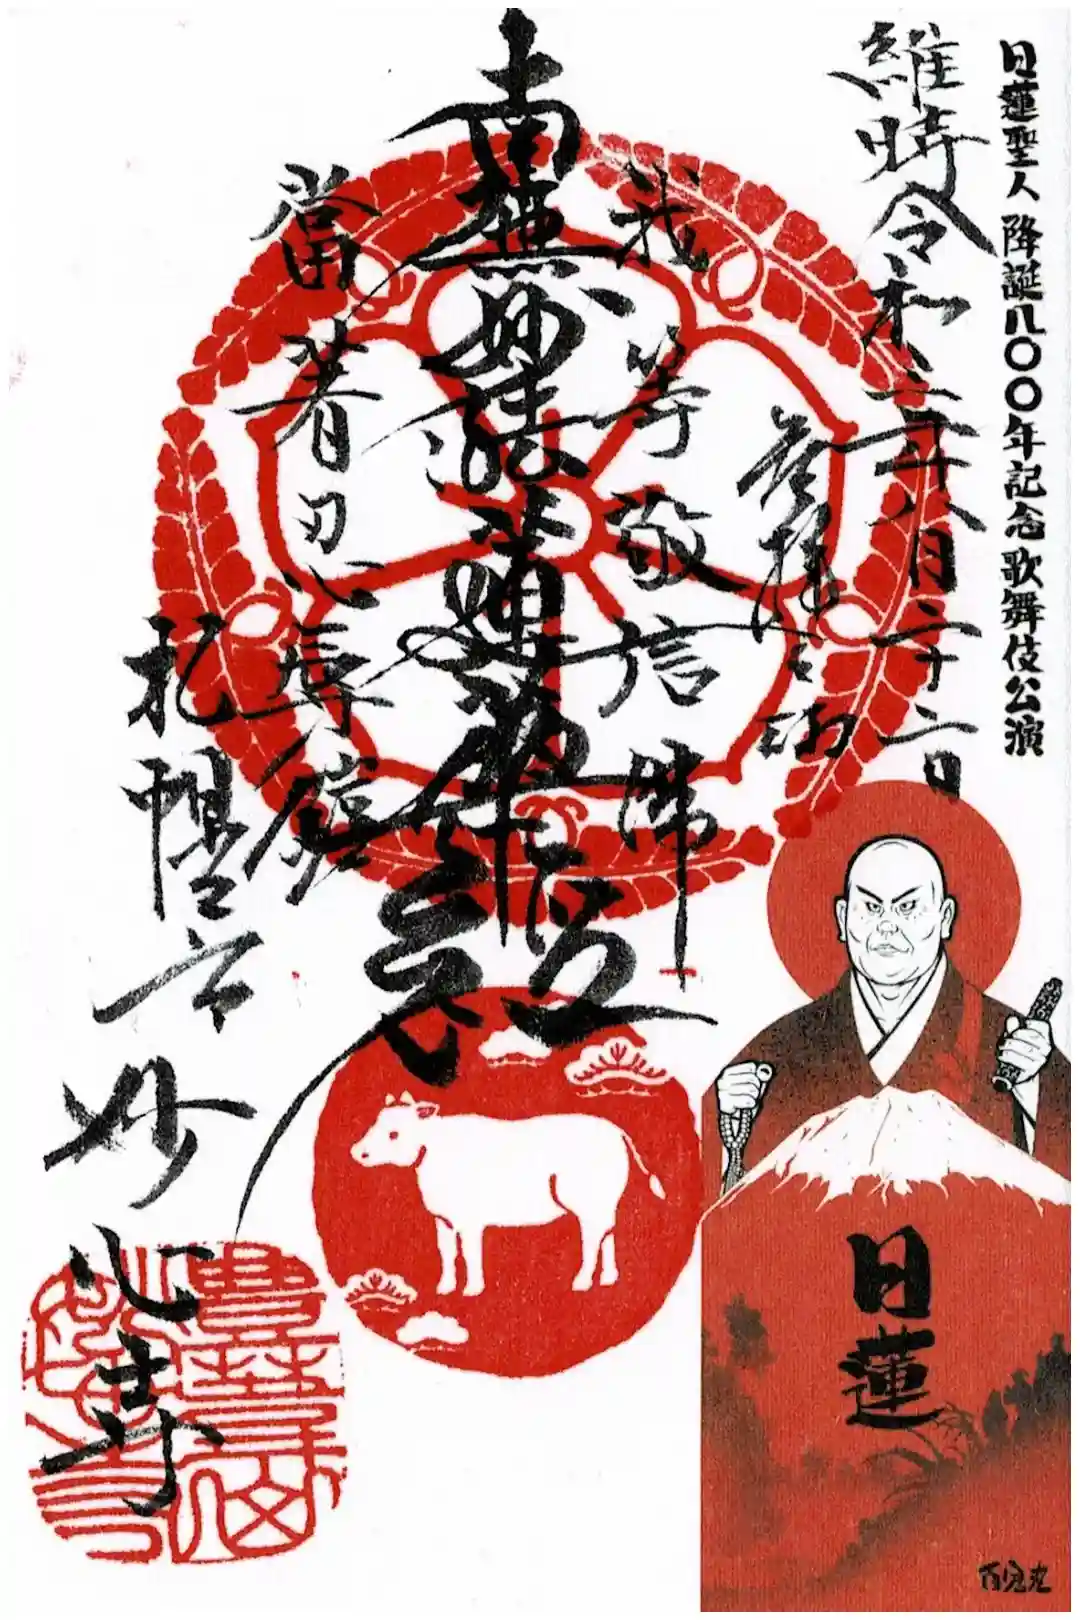 日蓮聖人降誕八〇〇年記念歌舞伎公演
維時令和三年八月二十二日
参拝之砌
我等敬信佛
南無妙法蓮華経
當著忍辱鎧
札幌市
妙心寺
日蓮